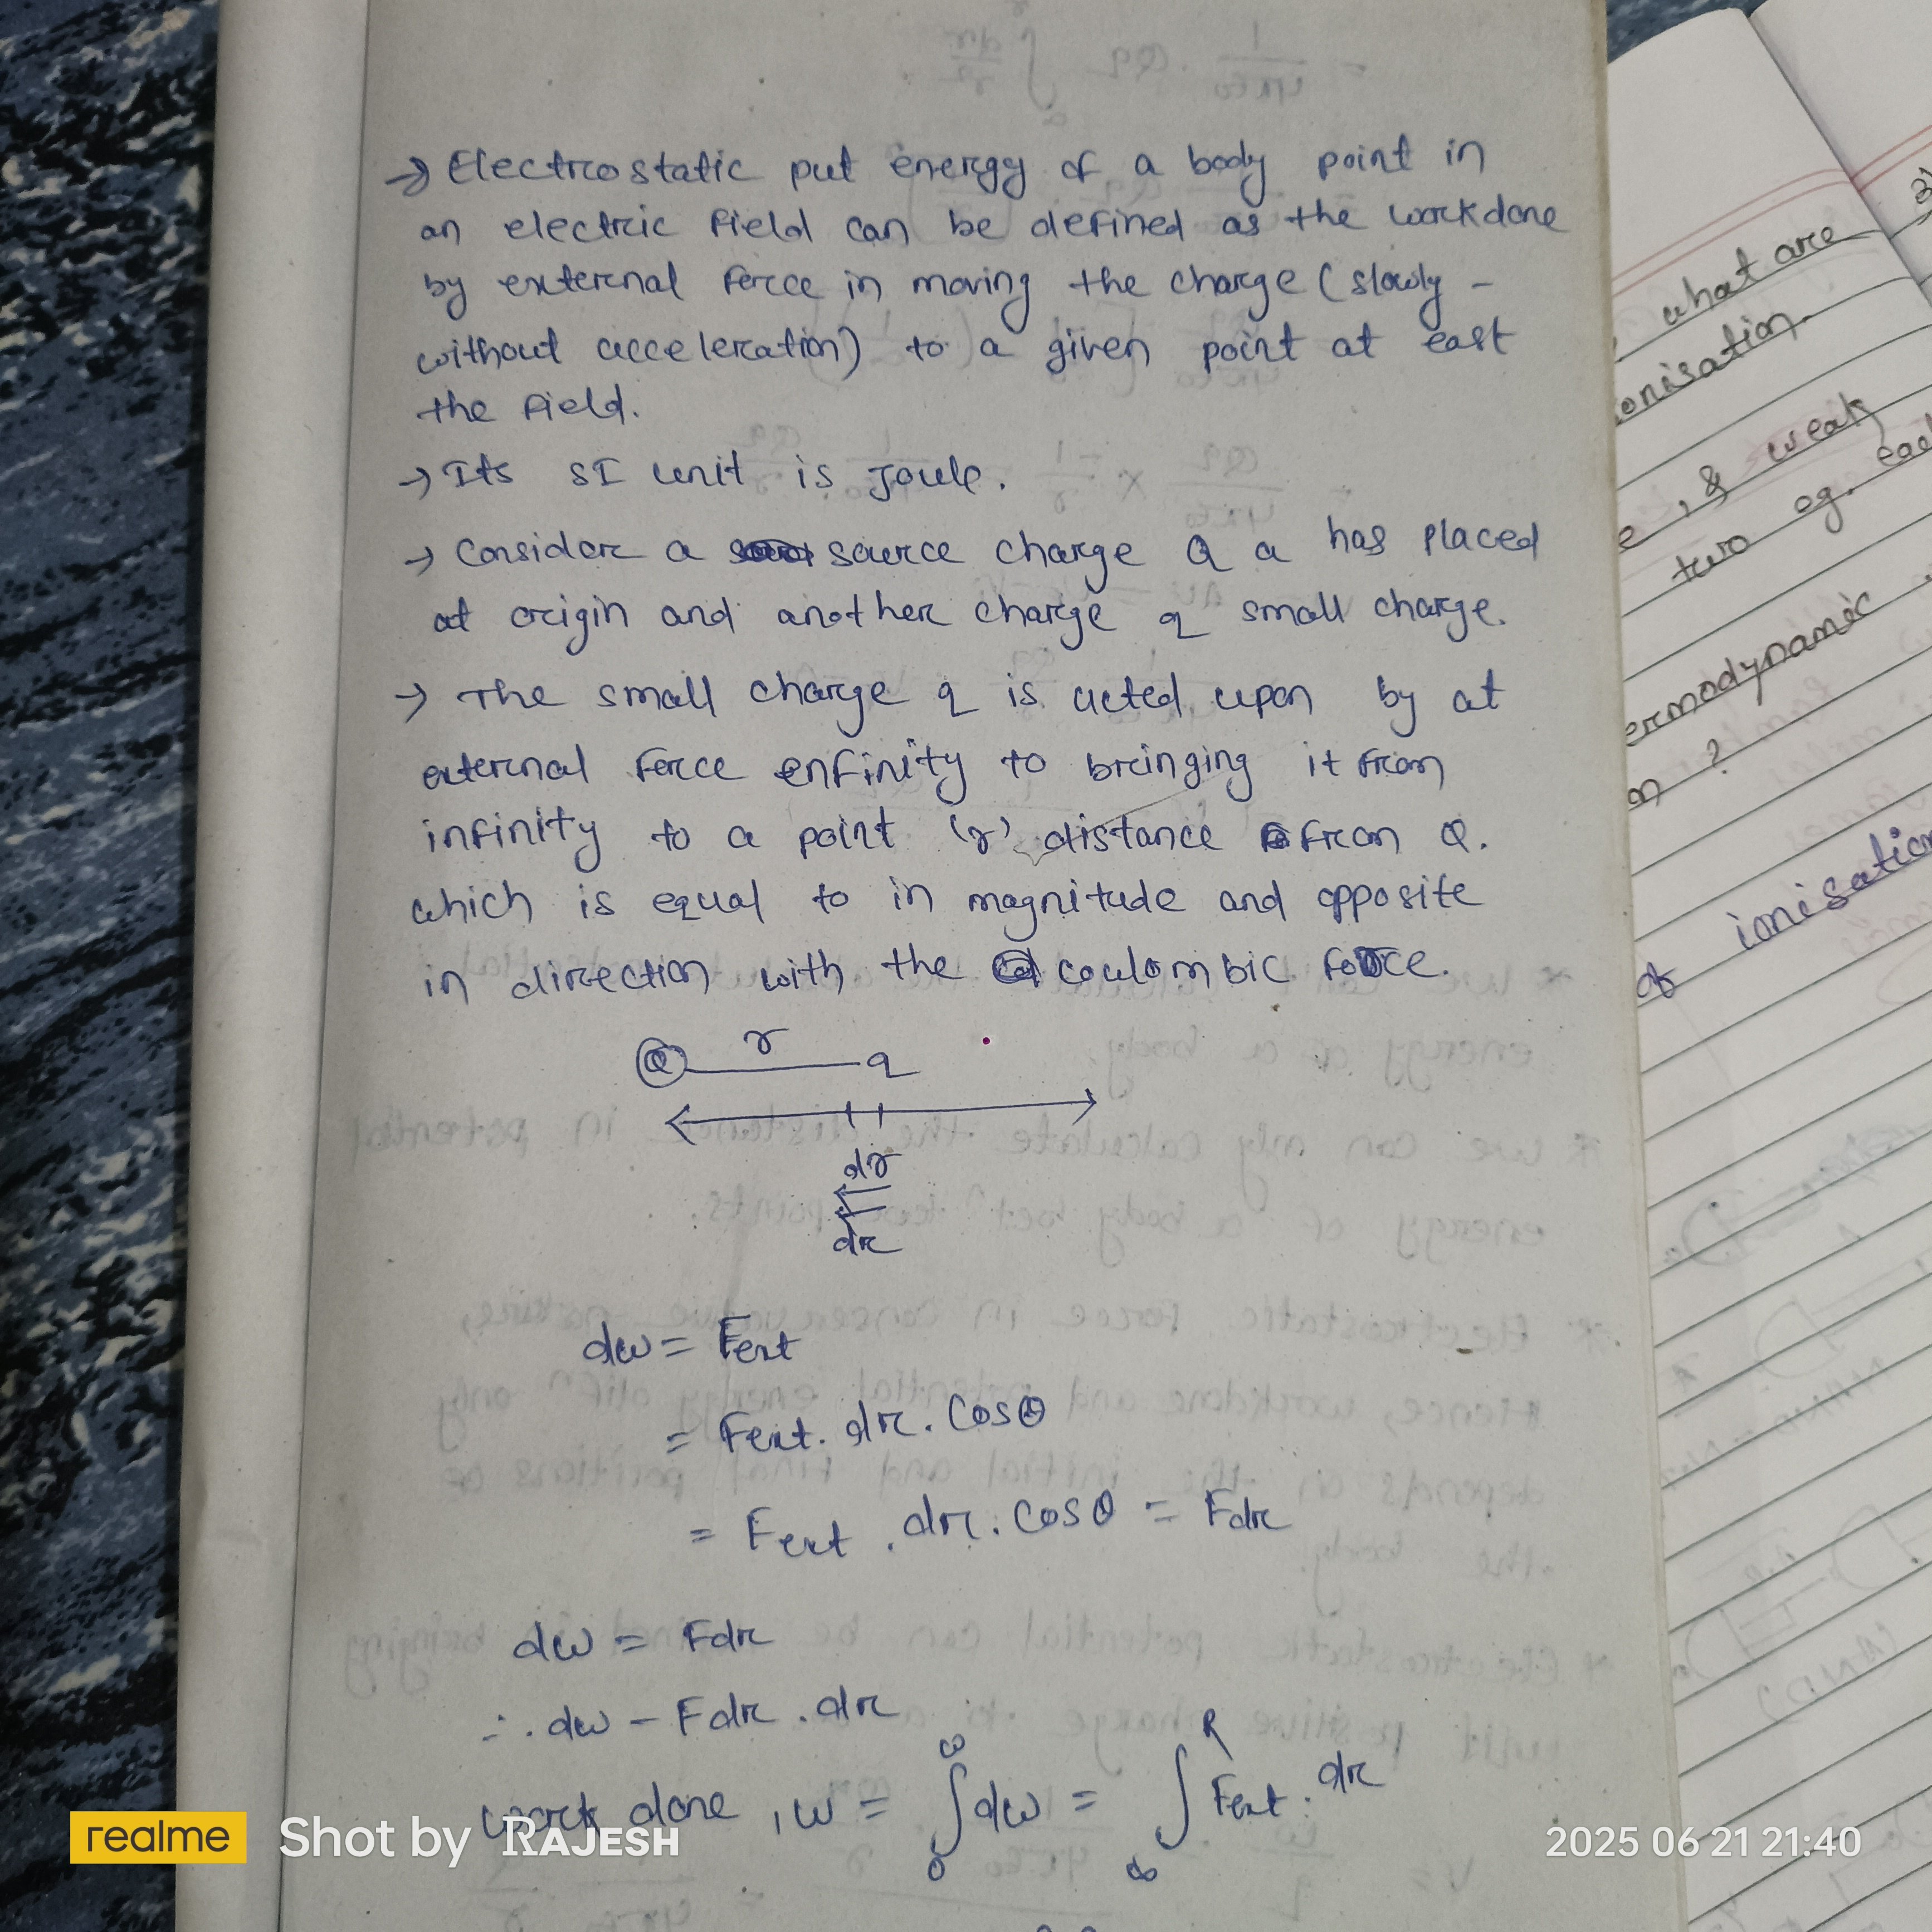 → Electrostatic put energy of a body point in
an electric field can be defined as the workdone
by external force in moving the charge (slowly -
without acceleration) to a given point at east
the field.
→ Its SI unit is Joule.
→ Consider a source charge Q a has placed
at origin and another charge q small charge.
→ The small charge q is acted upon by at
external force enfinity to bringing it from
infinity to a point 'r' distance from Q.
which is equal to in magnitude and opposite
in direction with the coulombic force.
Q r q
dr
dr
dw = Fext
= Fext. dr. Cosθ
= Fext . dr. Cosθ = Fdr
dw = Fdr
∴ dw - Fdr . dr
work done , w = ∫₀^ω dw = ∫_∞^R Fext . dr
what are
onisation.
e, & weak
two eg. each
ermodynamic
on ?
ionisation
of
realme Shot by RAJESH
2025 06 21 21:40